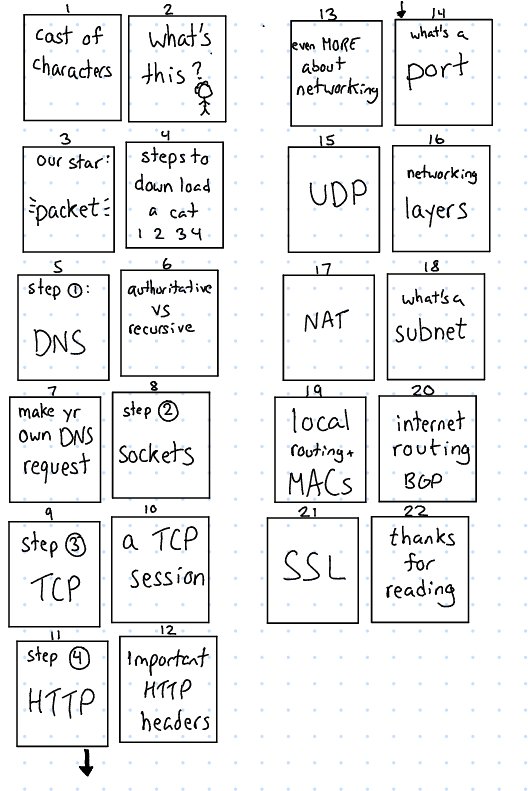 1
cast of
characters
2
what's
this?
3
our star:
packet
4
steps to
download
a cat
1 2 3 4
5
step ①:
DNS
6
authoritative
vs
recursive
7
make yr
own DNS
request
8
step ②
sockets
9
step ③
TCP
10
a TCP
session
11
step ④
HTTP
12
Important
HTTP
headers
13
even MORE
about
networking
14
what's a
port
15
UDP
16
networking
layers
17
NAT
18
what's a
subnet
19
local
routing +
MACs
20
internet
routing
BGP
21
SSL
22
thanks
for
reading